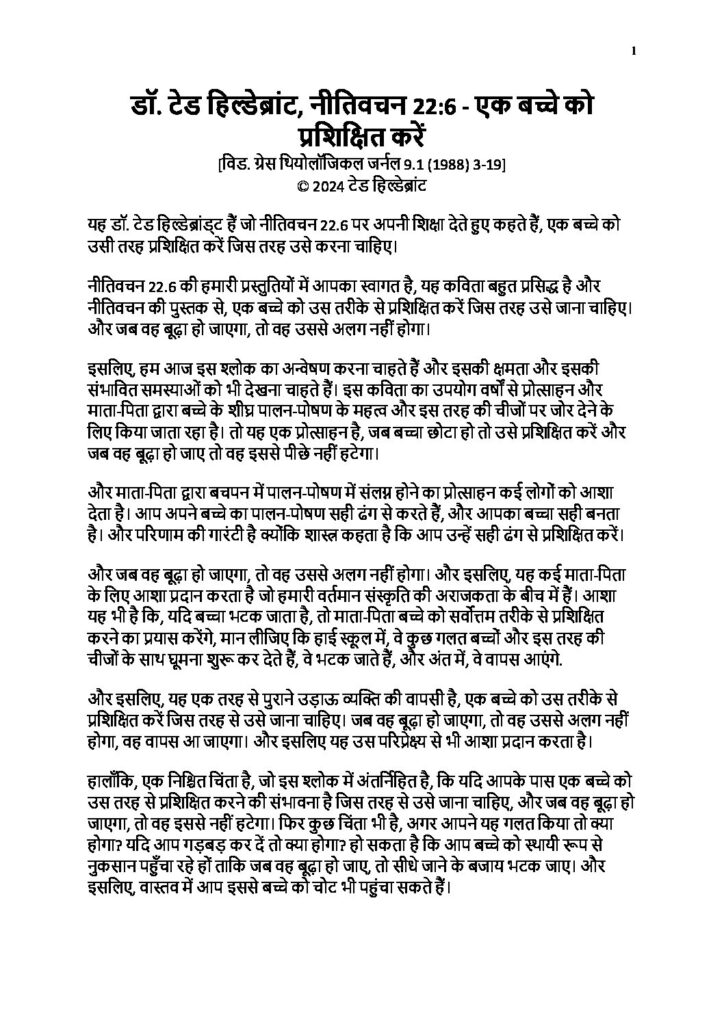 1
डॉ. टेड हिल्डेब्रांट, नीतिवचन 22:6 - एक बच्चे को
प्रशिक्षित करें
[विड. ग्रेस थियोलॉजिकल जर्नल 9.1 (1988) 3-19]
© 2024 टेड हिल्डेब्रांट
यह डॉ. टेड हिल्डेब्रांड्ट हैं जो नीतिवचन 22.6 पर अपनी शिक्षा देते हुए कहते हैं, एक बच्चे को
उसी तरह प्रशिक्षित करें जिस तरह उसे करना चाहिए।
नीतिवचन 22.6 की हमारी प्रस्तुतियों में आपका स्वागत है, यह कविता बहुत प्रसिद्ध है और
नीतिवचन की पुस्तक से, एक बच्चे को उस तरीके से प्रशिक्षित करें जिस तरह उसे जाना चाहिए।
और जब वह बूढ़ा हो जाएगा, तो वह उससे अलग नहीं होगा।
इसलिए, हम आज इस श्लोक का अन्वेषण करना चाहते हैं और इसकी क्षमता और इसकी
संभावित समस्याओं को भी देखना चाहते हैं। इस कविता का उपयोग वर्षों से प्रोत्साहन और
माता-पिता द्वारा बच्चे के शीघ्र पालन-पोषण के महत्व और इस तरह की चीजों पर जोर देने के
लिए किया जाता रहा है। तो यह एक प्रोत्साहन है, जब बच्चा छोटा हो तो उसे प्रशिक्षित करें और
जब वह बूढ़ा हो जाए तो वह इससे पीछे नहीं हटेगा।
और माता-पिता द्वारा बचपन में पालन-पोषण में संलग्न होने का प्रोत्साहन कई लोगों को आशा
देता है। आप अपने बच्चे का पालन-पोषण सही ढंग से करते हैं, और आपका बच्चा सही बनता
है। और परिणाम की गारंटी है क्योंकि शास्त्र कहता है कि आप उन्हें सही ढंग से प्रशिक्षित करें।
और जब वह बूढ़ा हो जाएगा, तो वह उससे अलग नहीं होगा। और इसलिए, यह कई माता-पिता
के लिए आशा प्रदान करता है जो हमारी वर्तमान संस्कृति की अराजकता के बीच में हैं। आशा
यह भी है कि, यदि बच्चा भटक जाता है, तो माता-पिता बच्चे को सर्वोत्तम तरीके से प्रशिक्षित
करने का प्रयास करेंगे, मान लीजिए कि हाई स्कूल में, वे कुछ गलत बच्चों और इस तरह की
चीजों के साथ घूमना शुरू कर देते हैं, वे भटक जाते हैं, और अंत में, वे वापस आएंगे.
और इसलिए, यह एक तरह से पुराने उड़ाऊ व्यक्ति की वापसी है, एक बच्चे को उस तरीके से
प्रशिक्षित करें जिस तरह से उसे जाना चाहिए। जब वह बूढ़ा हो जाएगा, तो वह उससे अलग नहीं
होगा, वह वापस आ जाएगा। और इसलिए यह उस परिप्रेक्ष्य से भी आशा प्रदान करता है।
हालाँकि, एक निश्चित चिंता है, जो इस श्लोक में अंतर्निहित है, कि यदि आपके पास एक बच्चे को
उस तरह से प्रशिक्षित करने की संभावना है जिस तरह से उसे जाना चाहिए, और जब वह बूढ़ा हो
जाएगा, तो वह इससे नहीं हटेगा। फिर कुछ चिंता भी है, अगर आपने यह गलत किया तो क्या
होगा? यदि आप गड़बड़ कर दें तो क्या होगा? हो सकता है कि आप बच्चे को स्थायी रूप से
नुकसान पहुँचा रहे हों ताकि जब वह बूढ़ा हो जाए, तो सीधे जाने के बजाय भटक जाए। और
इसलिए, वास्तव में आप इससे बच्चे को चोट भी पहुंचा सकते हैं।